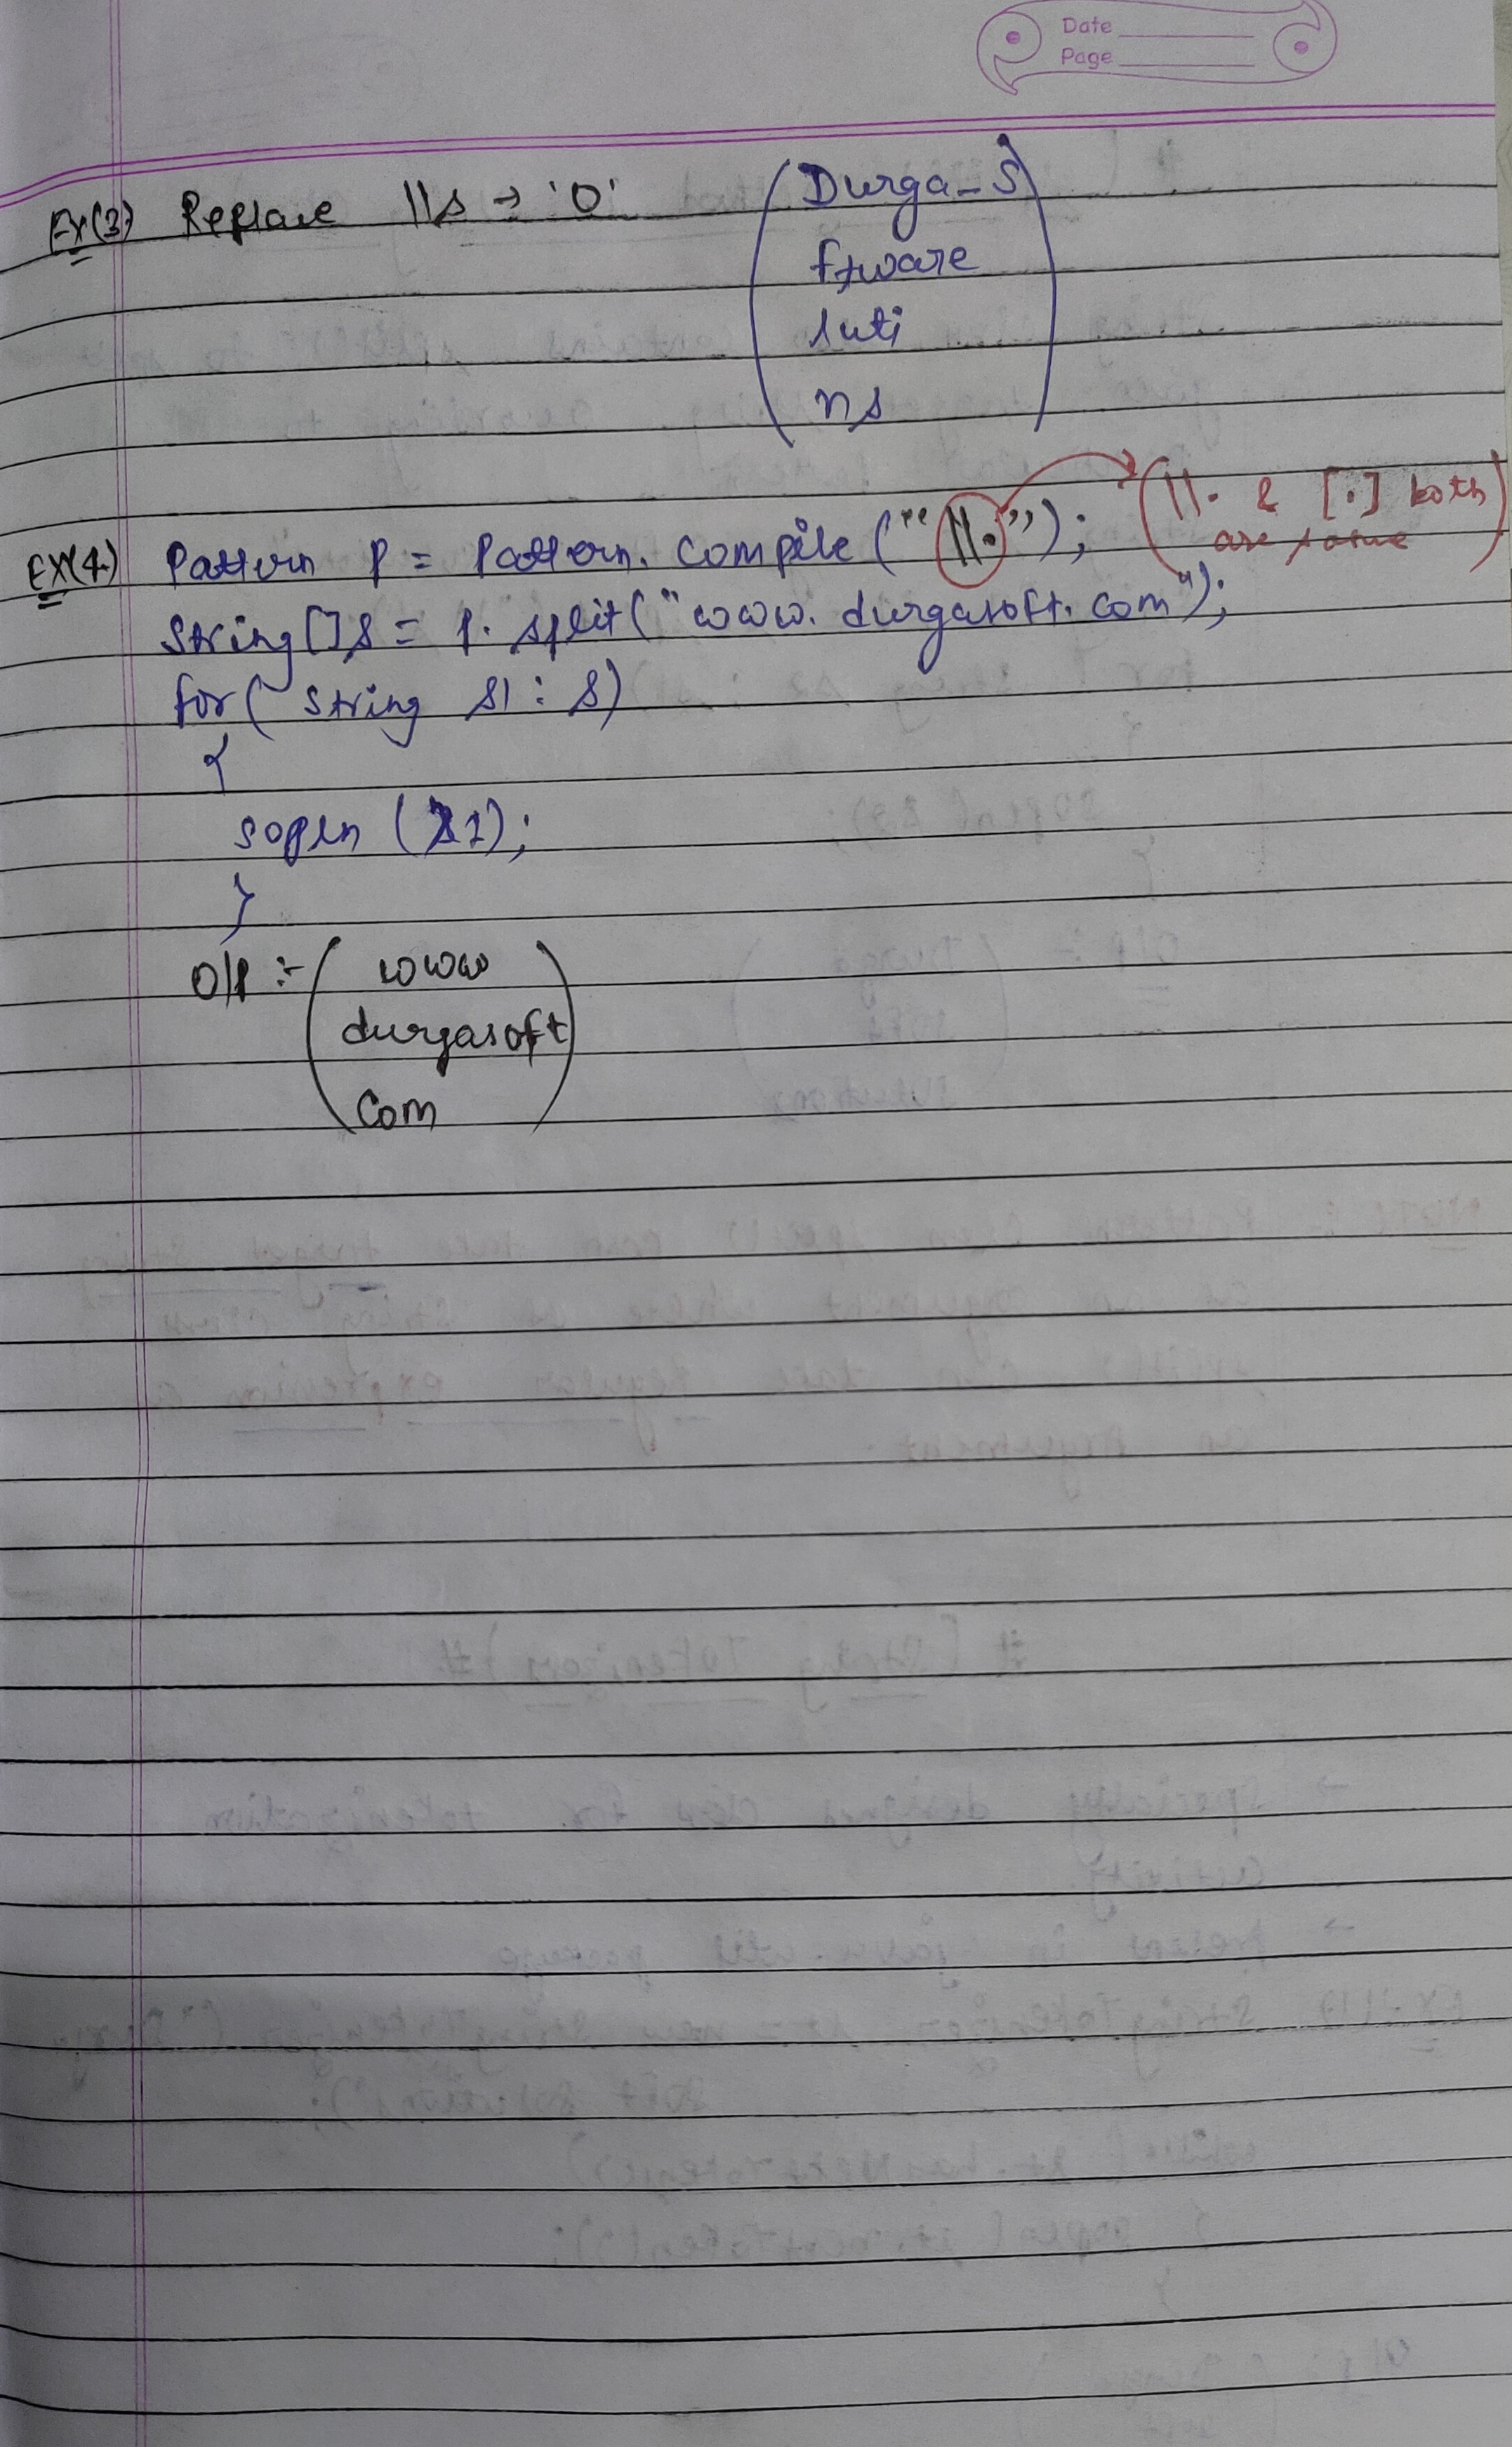 Date
Page
Ex(3) Replace \\s → 'o' (Durga-S
ftware
luti
ns)
Ex(4) Pattern p = Pattern. Compile ("\\."); (\\. & [.] both
are same)
String[]s = p. split("www. durgasoft. com");
for( string s1 : s)
{
sopln (s1);
}
O/P :- ( www
durgasoft
Com )